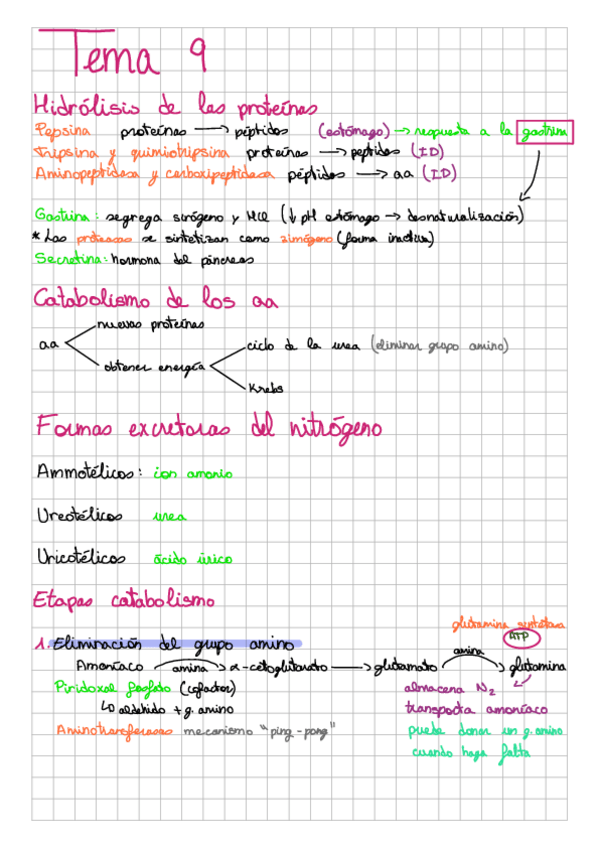 Tema 9
Hidrólisis de las proteínas
Pepsina proteínas → péptidos (estómago) → respuesta a la gastrina
Tripsina y quimiotripsina proteínas → péptidos (ID)
Aminopeptidasa y carboxipeptidasa péptidos → aa (ID)
Gastrina: segrega zirógeno y HCl (↓ pH estómago → desnaturalización)
* Las proteasas se sintetizan como zimógeno (forma inactiva)
Secretina: hormona del páncreas
Catabolismo de los aa
nuevas proteínas
aa
ciclo de la urea (eliminar grupo amino)
obtener energía
Krebs
Formas excretoras del nitrógeno
Ammotélicos: ion amonio
Ureotélicos urea
Uricotélicos ácido úrico
Etapas catabolismo
glutamina sintetasa
ATP
1. Eliminación del grupo amino
amina
Amoníaco amina → α-cetoglutarato → glutamato → glutamina
Piridoxal fosfato (cofactor)
almacena N2
↳ aldehído + g. amino
transporta amoníaco
Aminotransferasas mecanismo "ping-pong"
puede donar un g. amino
cuando haga falta